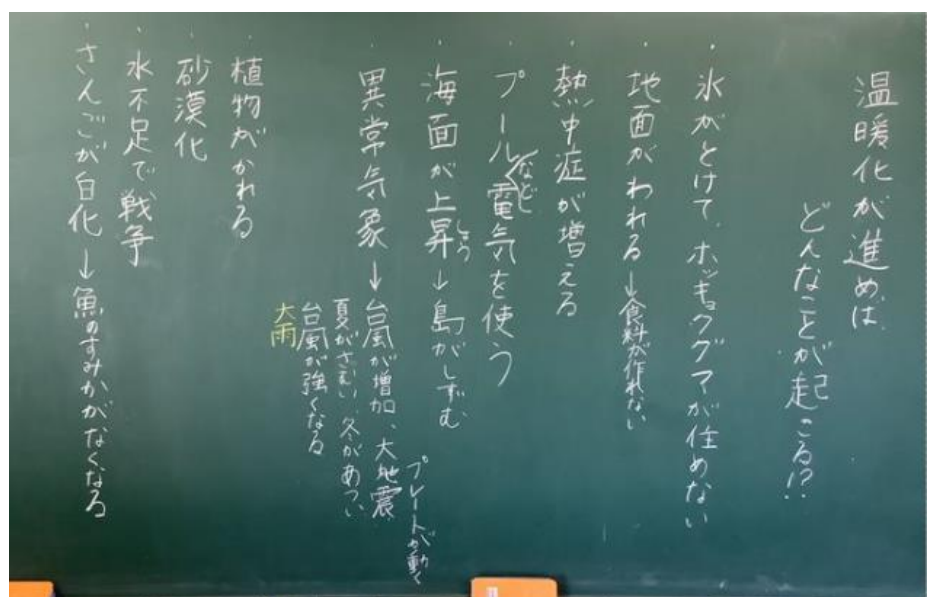 温暖化が進めば、
どんなことが起こる!?
・氷がとけて、ホッキョクグマが住めない
・地面がわれる→食料が作れない
・熱中症が増える
・プールなど電気を使う
・海面が上昇→島がしずむ
しょう
プレートが動く
・異常気象→台風が増加、大地震
夏がさむい、冬があつい
台風が強くなる
大雨
・植物がかれる
・砂漠化
・水不足で戦争
・さんごが白化→魚のすみかがなくなる